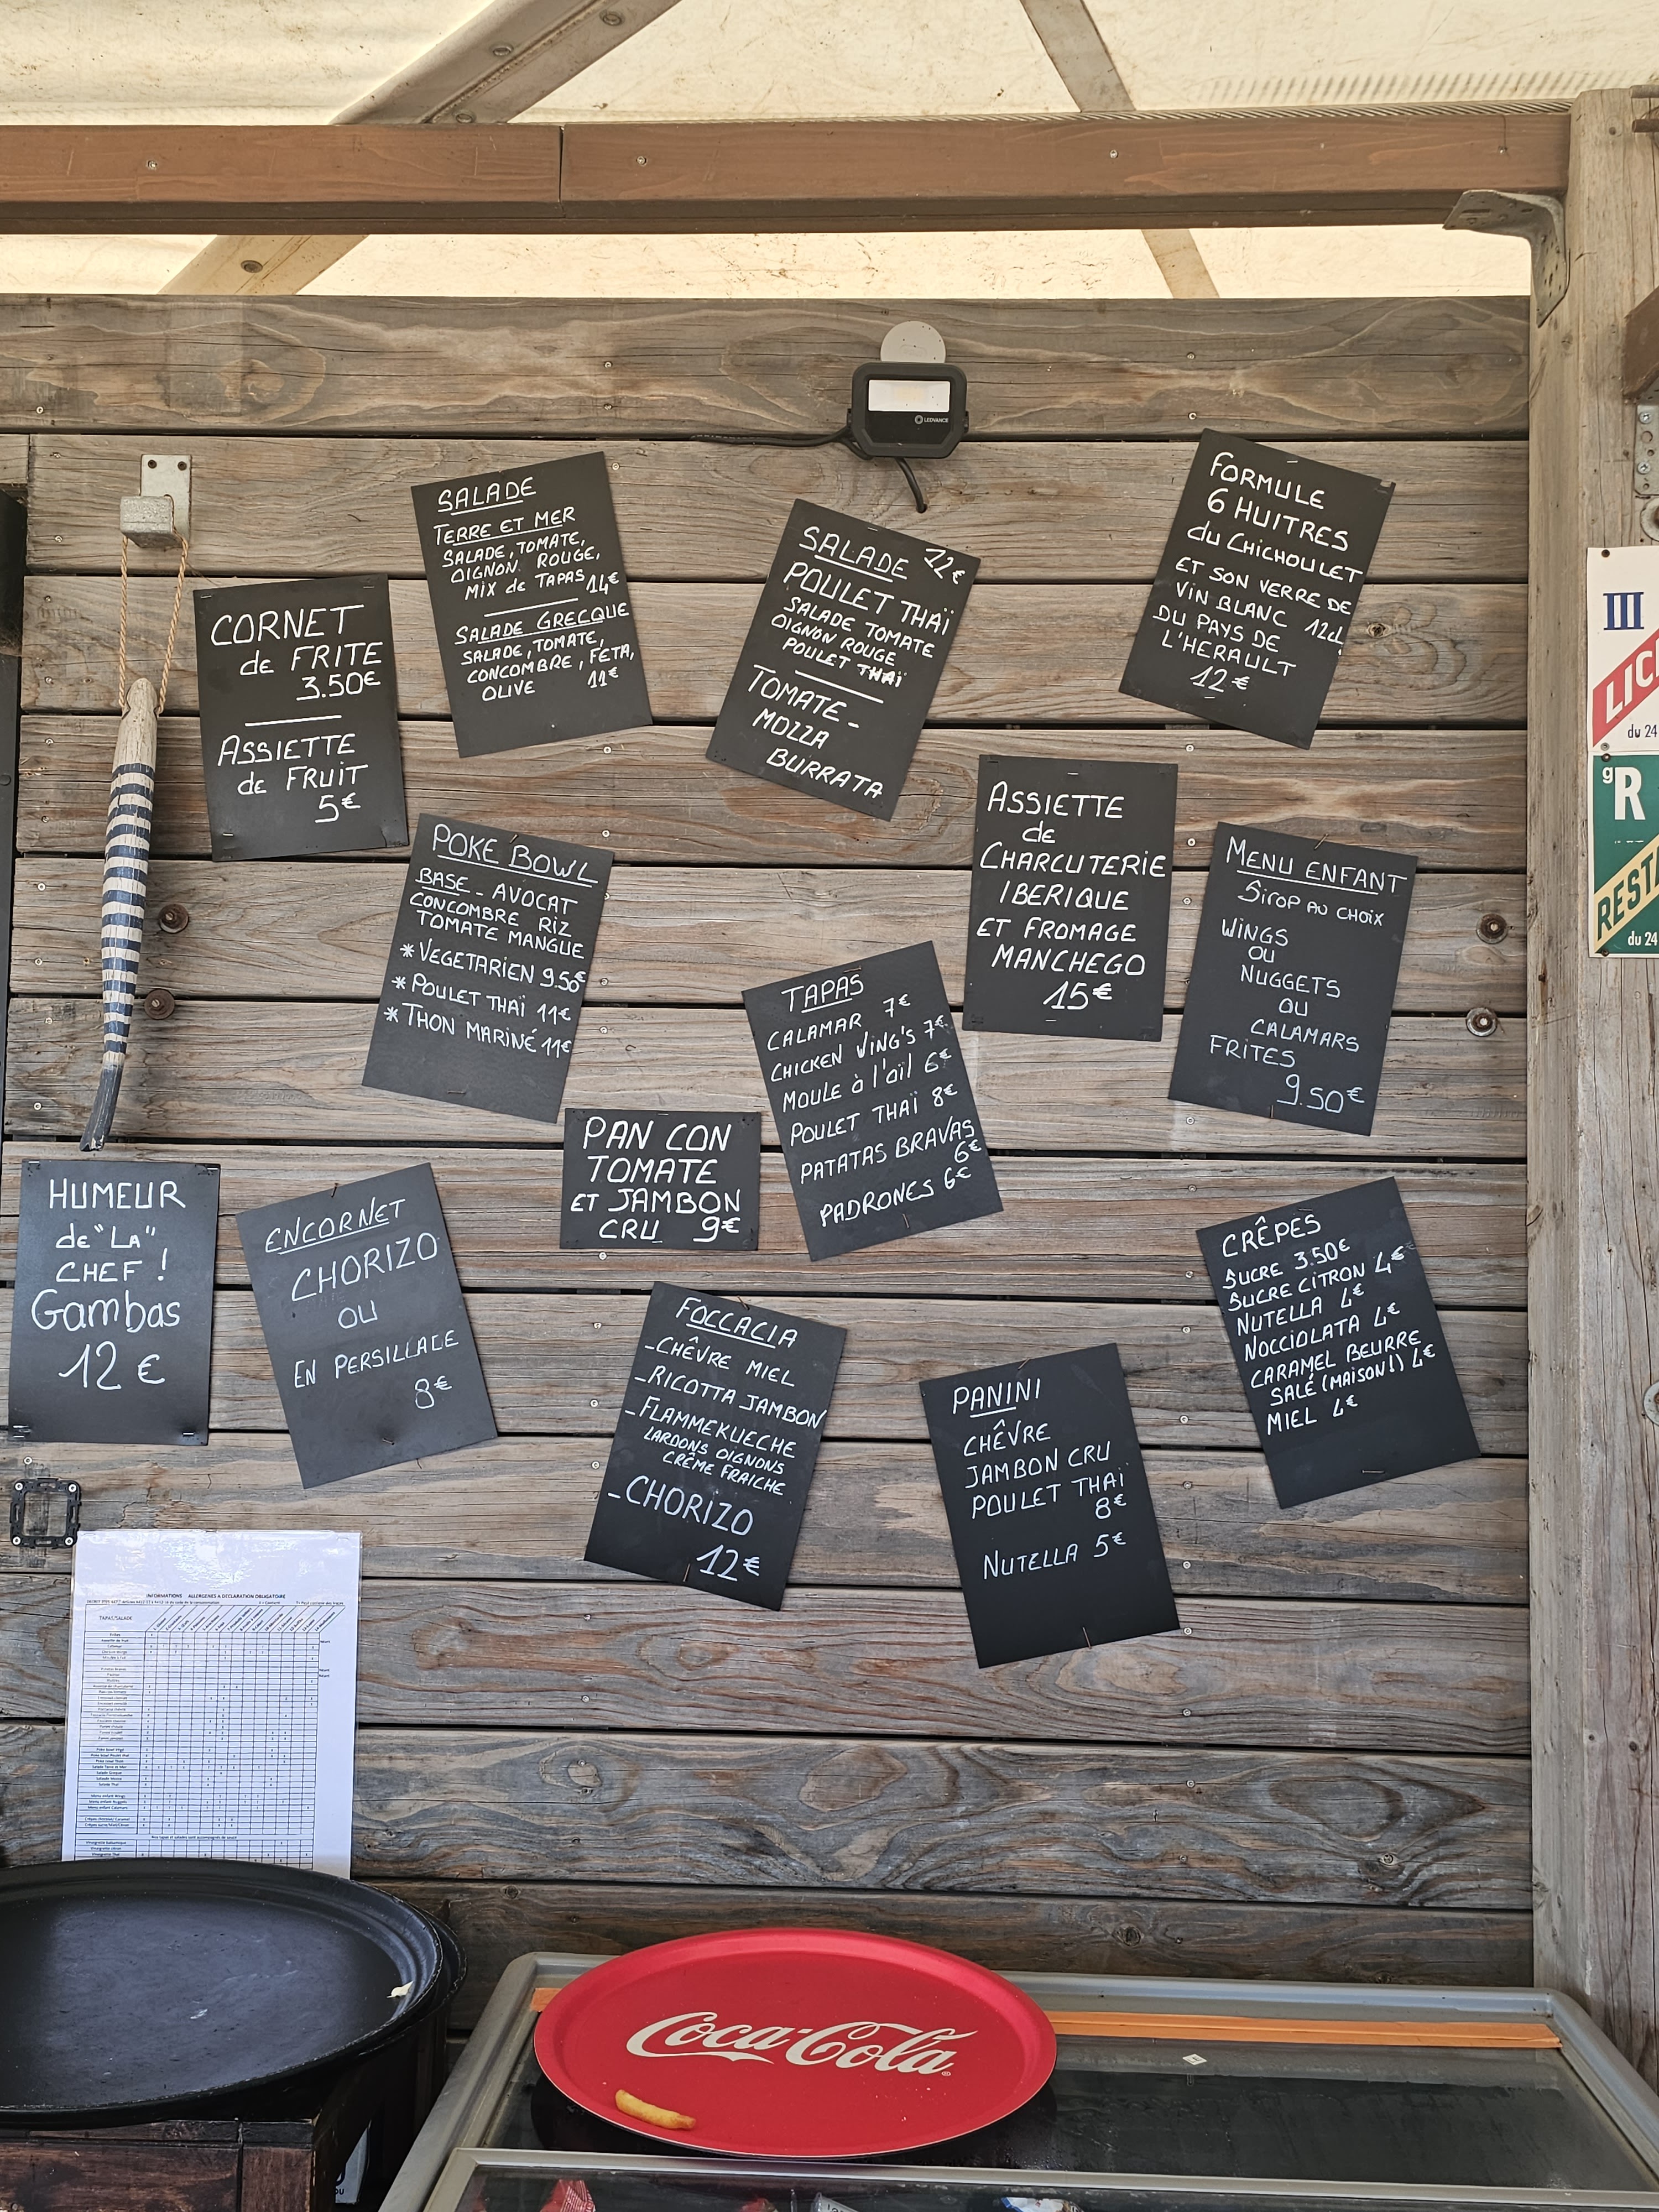 SALADE
TERRE ET MER
SALADE, TOMATE,
OIGNON ROUGE,
MIX de TAPAS 14€
SALADE GRECQUE
SALADE, TOMATE,
CONCOMBRE, FETA,
OLIVE 11€
SALADE 12€
POULET THAÏ
SALADE TOMATE
OIGNON ROUGE
POULET THAÏ
TOMATE-
MOZZA
BURRATA
FORMULE
6 HUITRES
du CHICHOULET
ET SON VERRE DE
VIN BLANC 12cl
DU PAYS DE
L'HERAULT
12€
LEDVANCE
CORNET
de FRITE
3.50€
ASSIETTE
de FRUIT
5€
POKE BOWL
BASE - AVOCAT
CONCOMBRE RIZ
TOMATE MANGUE
* VEGETARIEN 9.50€
* POULET THAÏ 11€
* THON MARINÉ 11€
ASSIETTE
de
CHARCUTERIE
IBERIQUE
ET FROMAGE
MANCHEGO
15€
MENU ENFANT
SIROP AU CHOIX
WINGS
OU
NUGGETS
OU
CALAMARS
FRITES
9.50€
TAPAS
CALAMAR 7€
CHICKEN WING'S 7€
MOULE à l'aïl 6€
POULET THAÏ 8€
PATATAS BRAVAS
6€
PADRONES 6€
PAN CON
TOMATE
ET JAMBON
CRU 9€
HUMEUR
de "LA"
CHEF !
Gambas
12€
ENCORNET
CHORIZO
OU
EN PERSILLADE
8€
FOCCACIA
- CHÊVRE MIEL
- RICOTTA JAMBON
- FLAMMEKUECHE
LARDONS OIGNONS
CRÊME FRAICHE
- CHORIZO
12€
PANINI
CHÊVRE
JAMBON CRU
POULET THAÏ
8€
NUTELLA 5€
CRÊPES
SUCRE 3.50€
SUCRE CITRON 4€
NUTELLA 4€
NOCCIOLATA 4€
CARAMEL BEURRE
SALÉ (MAISON!) 4€
MIEL 4€
III
du 24
R
du 24
INFORMATIONS ALLERGENES A DECLARATION OBLIGATOIRE
TAPAS/SALADE
Coca-Cola